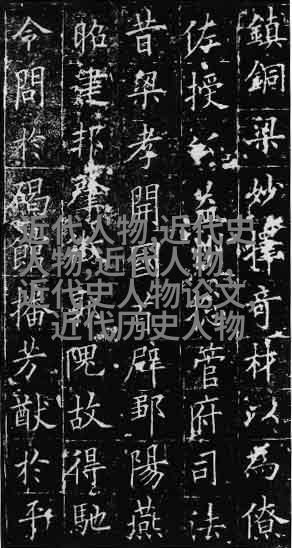 鎮銅梁妙擇奇材以為僚
佐授益州管府司法
昔梁孝開國首辟鄒陽燕
昭建邦肇郭隗故得馳
令問於碣館播芳猷於平
近代人物,近代史
人物,近代人物,
近代史人物论文
,近代历史人物